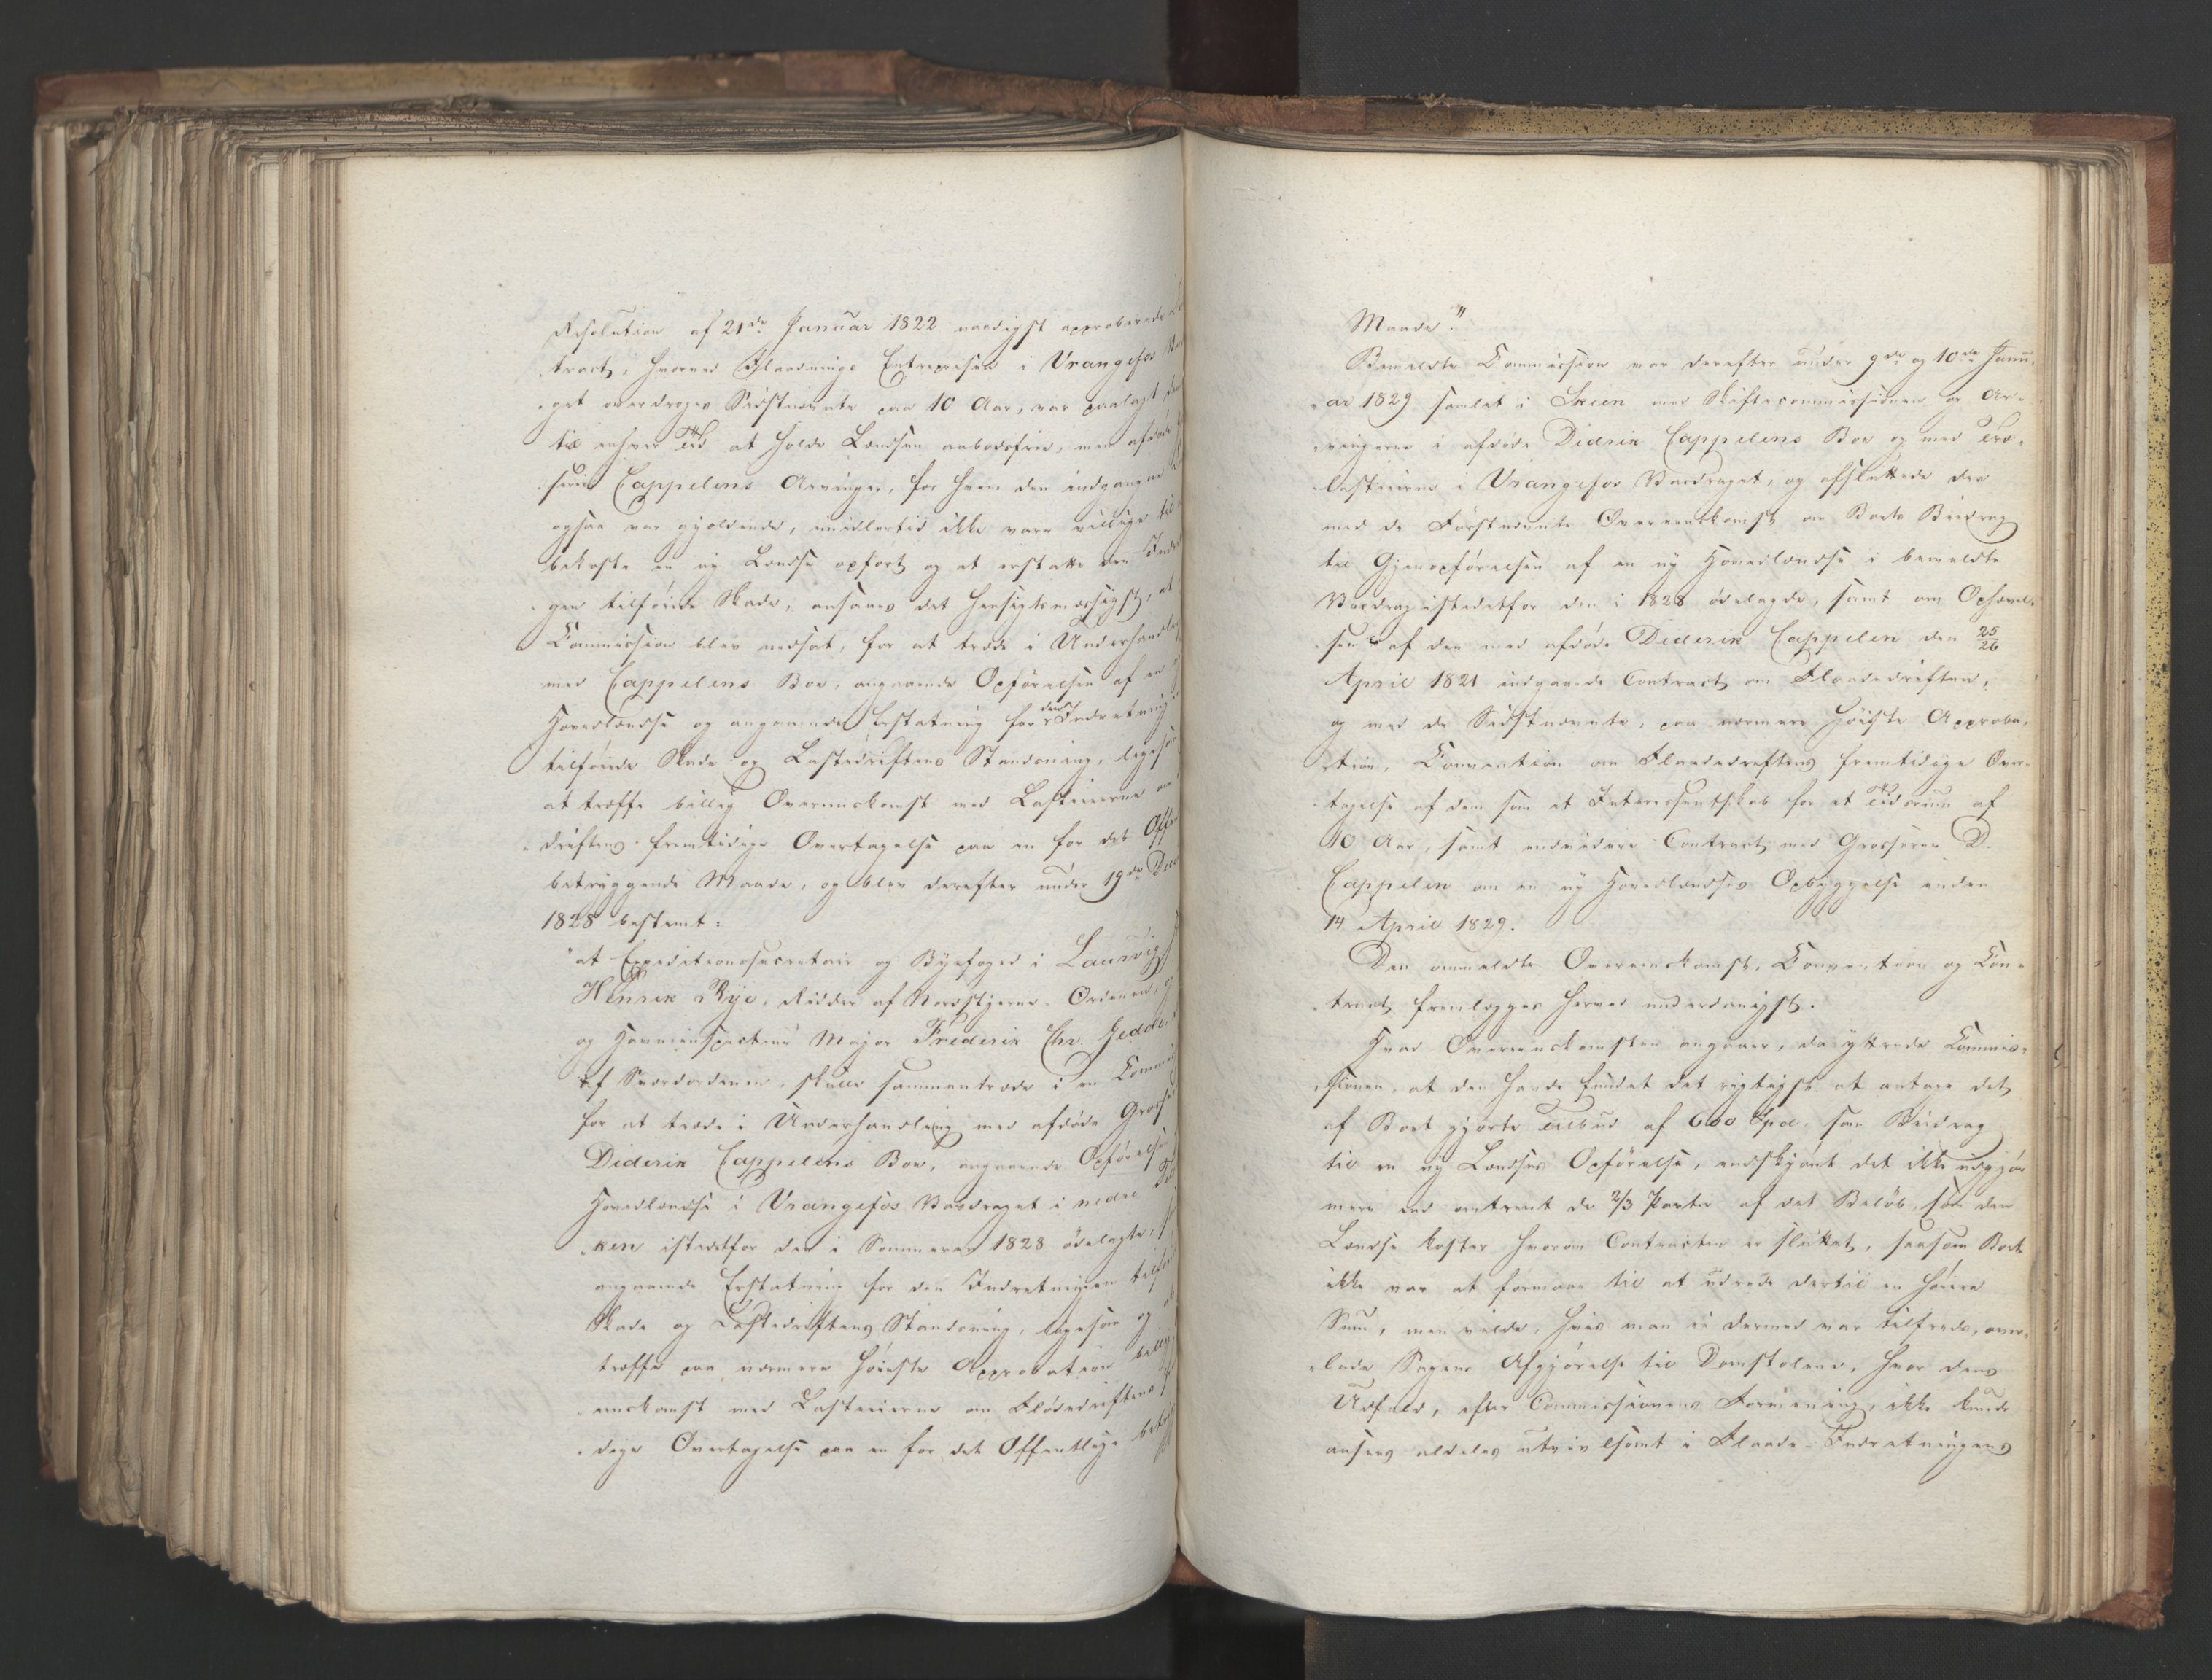 Resolution af 21de Januar 1822 naadigst approberede
tract, hvorved Flaadnings Entreprisen i Vrangefos
get overdroges Sidstnævnte paa 10 Aar, var paalagt
til enhver Tid at holde Lændsen aabodsfrie, men afdøde
Cappelens Arvinger, for hvem den indgangne
ogsaa var gjældende, imidlertid ikke vare villige til
bekoste en ny Lændse opført og at erstatte den Indret
gen tilføiede Skade, ansaaes det hensigtsmæssigst, at
Commission blev nedsat, for at træde i Underhandling
med Cappelens Boe, angaaende Opførelsen af en
Hovedlændse og angaaende Erstatning for den Indretning
tilføiede Skade og Lastedriftens Standsning, ligesom
at træffe billig Overeenskomst med Lasteierne om
driftens fremtidige Overtagelse paa en for det Offent
betryggende Maade, og blev derefter under 19de Dec
1828 bestemt:
"at Expeditionssecretair og Byefoged i Laurvig
Henrik Rye, Ridder af Nordstjerne-Ordenen,
og Havneinspecteur Major Frederik Chr. Gedde
af Sværdordenen, skulle sammentræde i en Commis
for at træde i Underhandling med afdøde Grosse
Diderik Cappelens Boe, angaaende Opførelse
Hovedlændse i Vrangefos Vasdraget i nedre
ken istedetfor den i Sommeren 1828 ødelagte,
angaaende Erstatning for den Indretningen tilføi
Skade og Lastedriftens Standsning, ligesom og at
træffe paa nærmere høieste Approbation billig
eenskomst med Lasteierne om Flødedriftens
dige Overtagelse paa en for det Offentlige betryg
Maade."
Bemeldte Commission var derefter under 9de og 10de Janu-
ar 1829 samlet i Skien med Skiftecommissionen og Ar-
vingerne i afdøde Didrik Cappelens Boe og med Træ-
lasteierne i Vrangefos Vasdraget, og afsluttede der
med de Førstnævnte Overeenskomst om Boets Bidrag
til Gjenopførelsen af en ny Hovedlændse i bemeldte
Vasdrag istedetfor den i 1828 ødelagde, samt om Ophævel-
sen af den med afdøde Diderik Cappelen den 25/26
April 1821 indgaaede Contract om Flaadedriften,
og med de Sidstnævnte, paa nærmere høieste Approba-
tion, Convention om Flaadedriftens fremtidige Over-
tagelse af dem som et Interessentskab for et Tidsrum af
10 Aar, samt endvidere Contract med Grosserer D.
Cappelen om en ny Hovedlændses Opbyggelse inden
14 April 1829.
Den anmeldte Overeenskomst, Convention og Con-
tract fremlægges herved underdanigst.
Hvad Overeenskomsten angaaer, da yttrede Commis-
sionen, at den havde fundet det rigtigst at antage det
af Boet gjorte Tilbud af 600 Spd. som Bidrag
til en ny Lændses Opførelse, endskjønt det ikke udgjør
mere end omtrent de 2/3 Parter af det Beløb, som den
Lændse koster hvorom Contracten er sluttet, saasom Boet
ikke var at formaae til at udrede dertil en høiere
Sum, men vilde, hvis man ei dermed var tilfreds, over-
lade Sagens Afgjørelse til Domstolene, hvor dens
Udfald, efter Commissionens Formening, ikke kunde
ansees aldeles utvivlsomt i Flaade-Indretningens